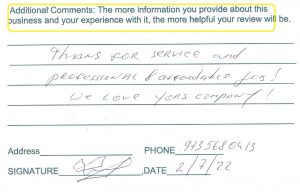 Additional Comments: The more information you provide about this
business and your experience with it, the more helpful your review will be.
Thans for service and
professional & affordable job!
We love yors company!
Address PHONE 9135680413
SIGNATURE DATE 2/7/22